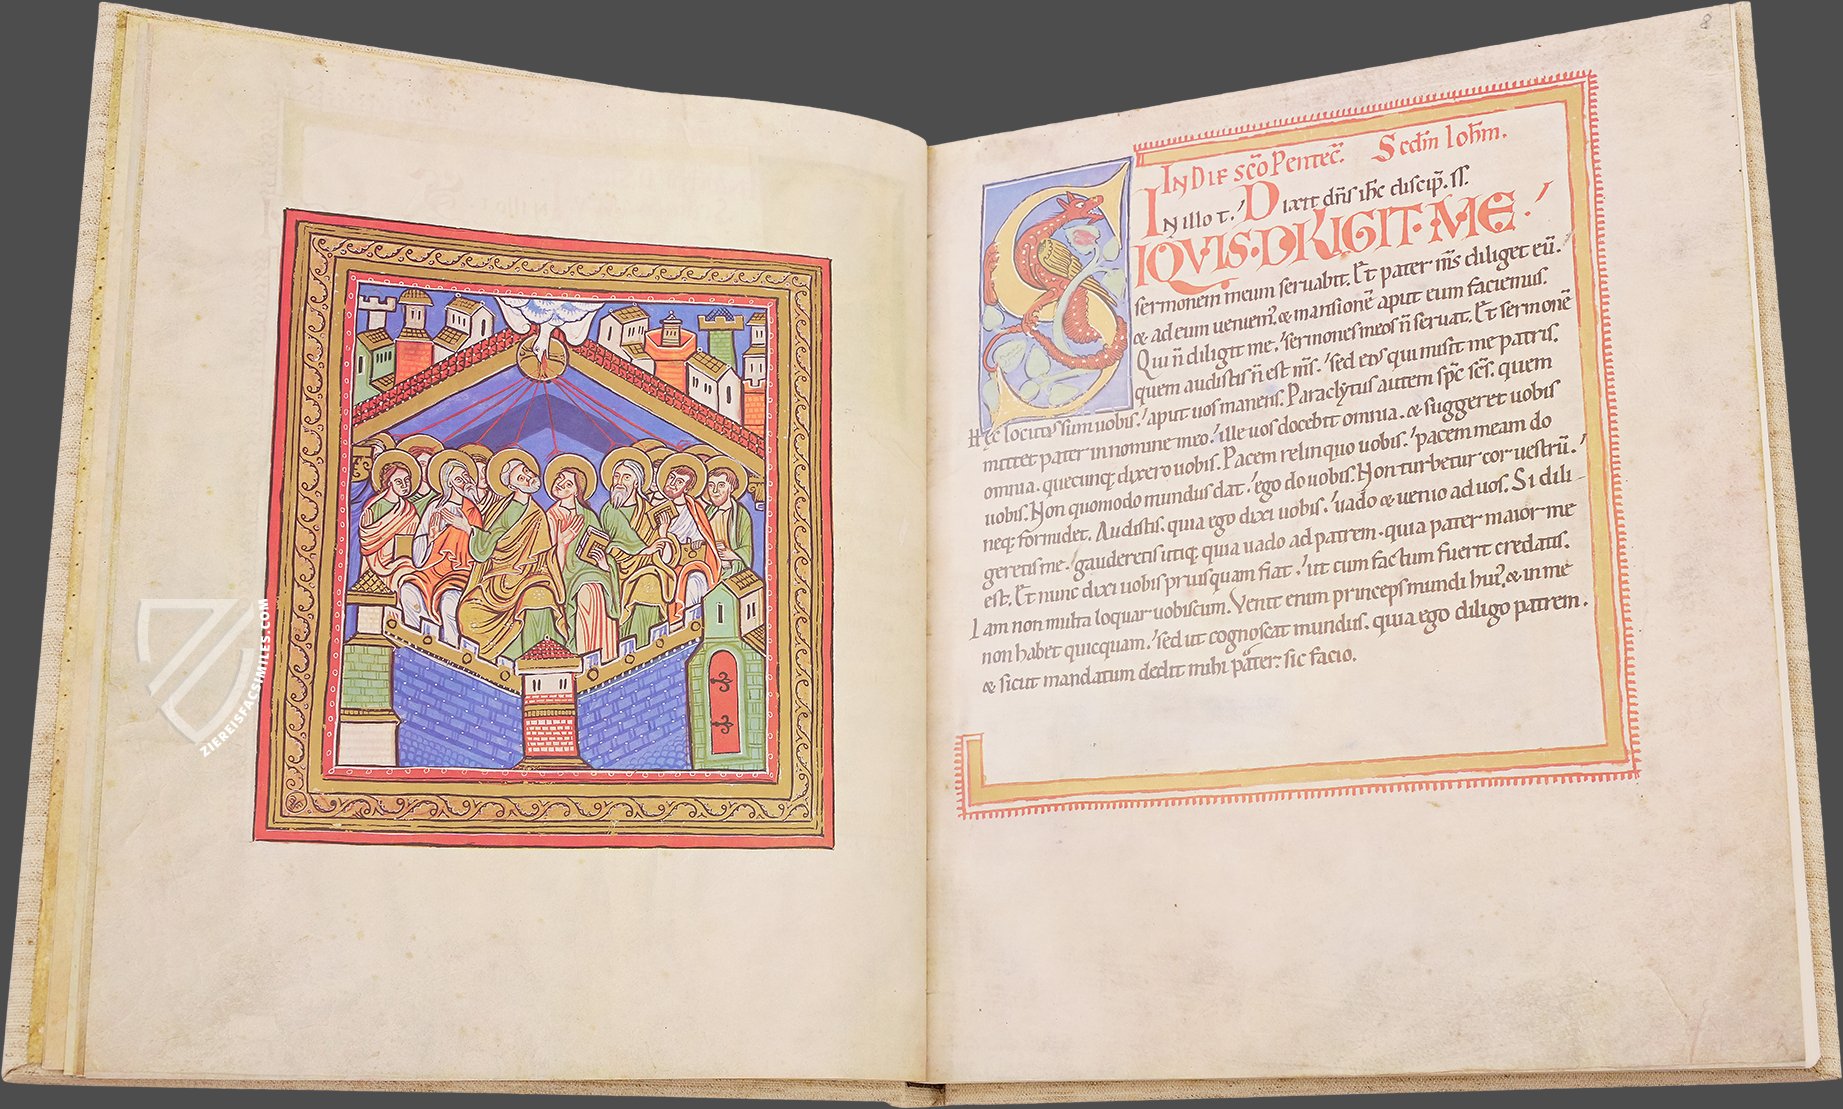 ZIEREISFACSIMILES.COM
8
IN DIE SC̄O PENTEC̄. Scdm̄ Ioh̄m.
IN illo t. Dixit dn̄s ih̄c discip̄. ss.
SIQVIS DILIGIT ME
sermonem meum seruabit. Et pater m̄s diliget eū.
& ad eum ueniem᷒, & mansionē aput eum faciemus.
Qui n̄ diligit me, sermones meos n̄ seruat. Et sermonē
quem audistis n̄ est m̄s, sed eius qui misit me patris.
Hęc locutus sum uobis, aput uos manens. Paraclytus autem sp̄c sc̄s. quem
mittet pater in nomine meo, ille uos docebit omnia. & suggeret uobis
omnia. quecunq; dixero uobis. Pacem relinquo uobis, pacem meam do
uobis. Non quomodo mundus dat, ego do uobis. Non turbetur cor uestrū.
neq; formidet. Audistis. quia ego dixi uobis, uado & uenio ad uos. Si dili-
geretis me, gauderetis utiq; quia uado ad patrem. quia pater maior me
est. Et nunc dixi uobis priusquam fiat, ut cum factum fuerit credatis.
Iam non multa loquar uobiscum. Venit enim princeps mundi hui᷒, & in me
non habet quicquam, sed ut cognoscat mundus. quia ego diligo patrem.
& sicut mandatum dedit mihi pater. sic facio.